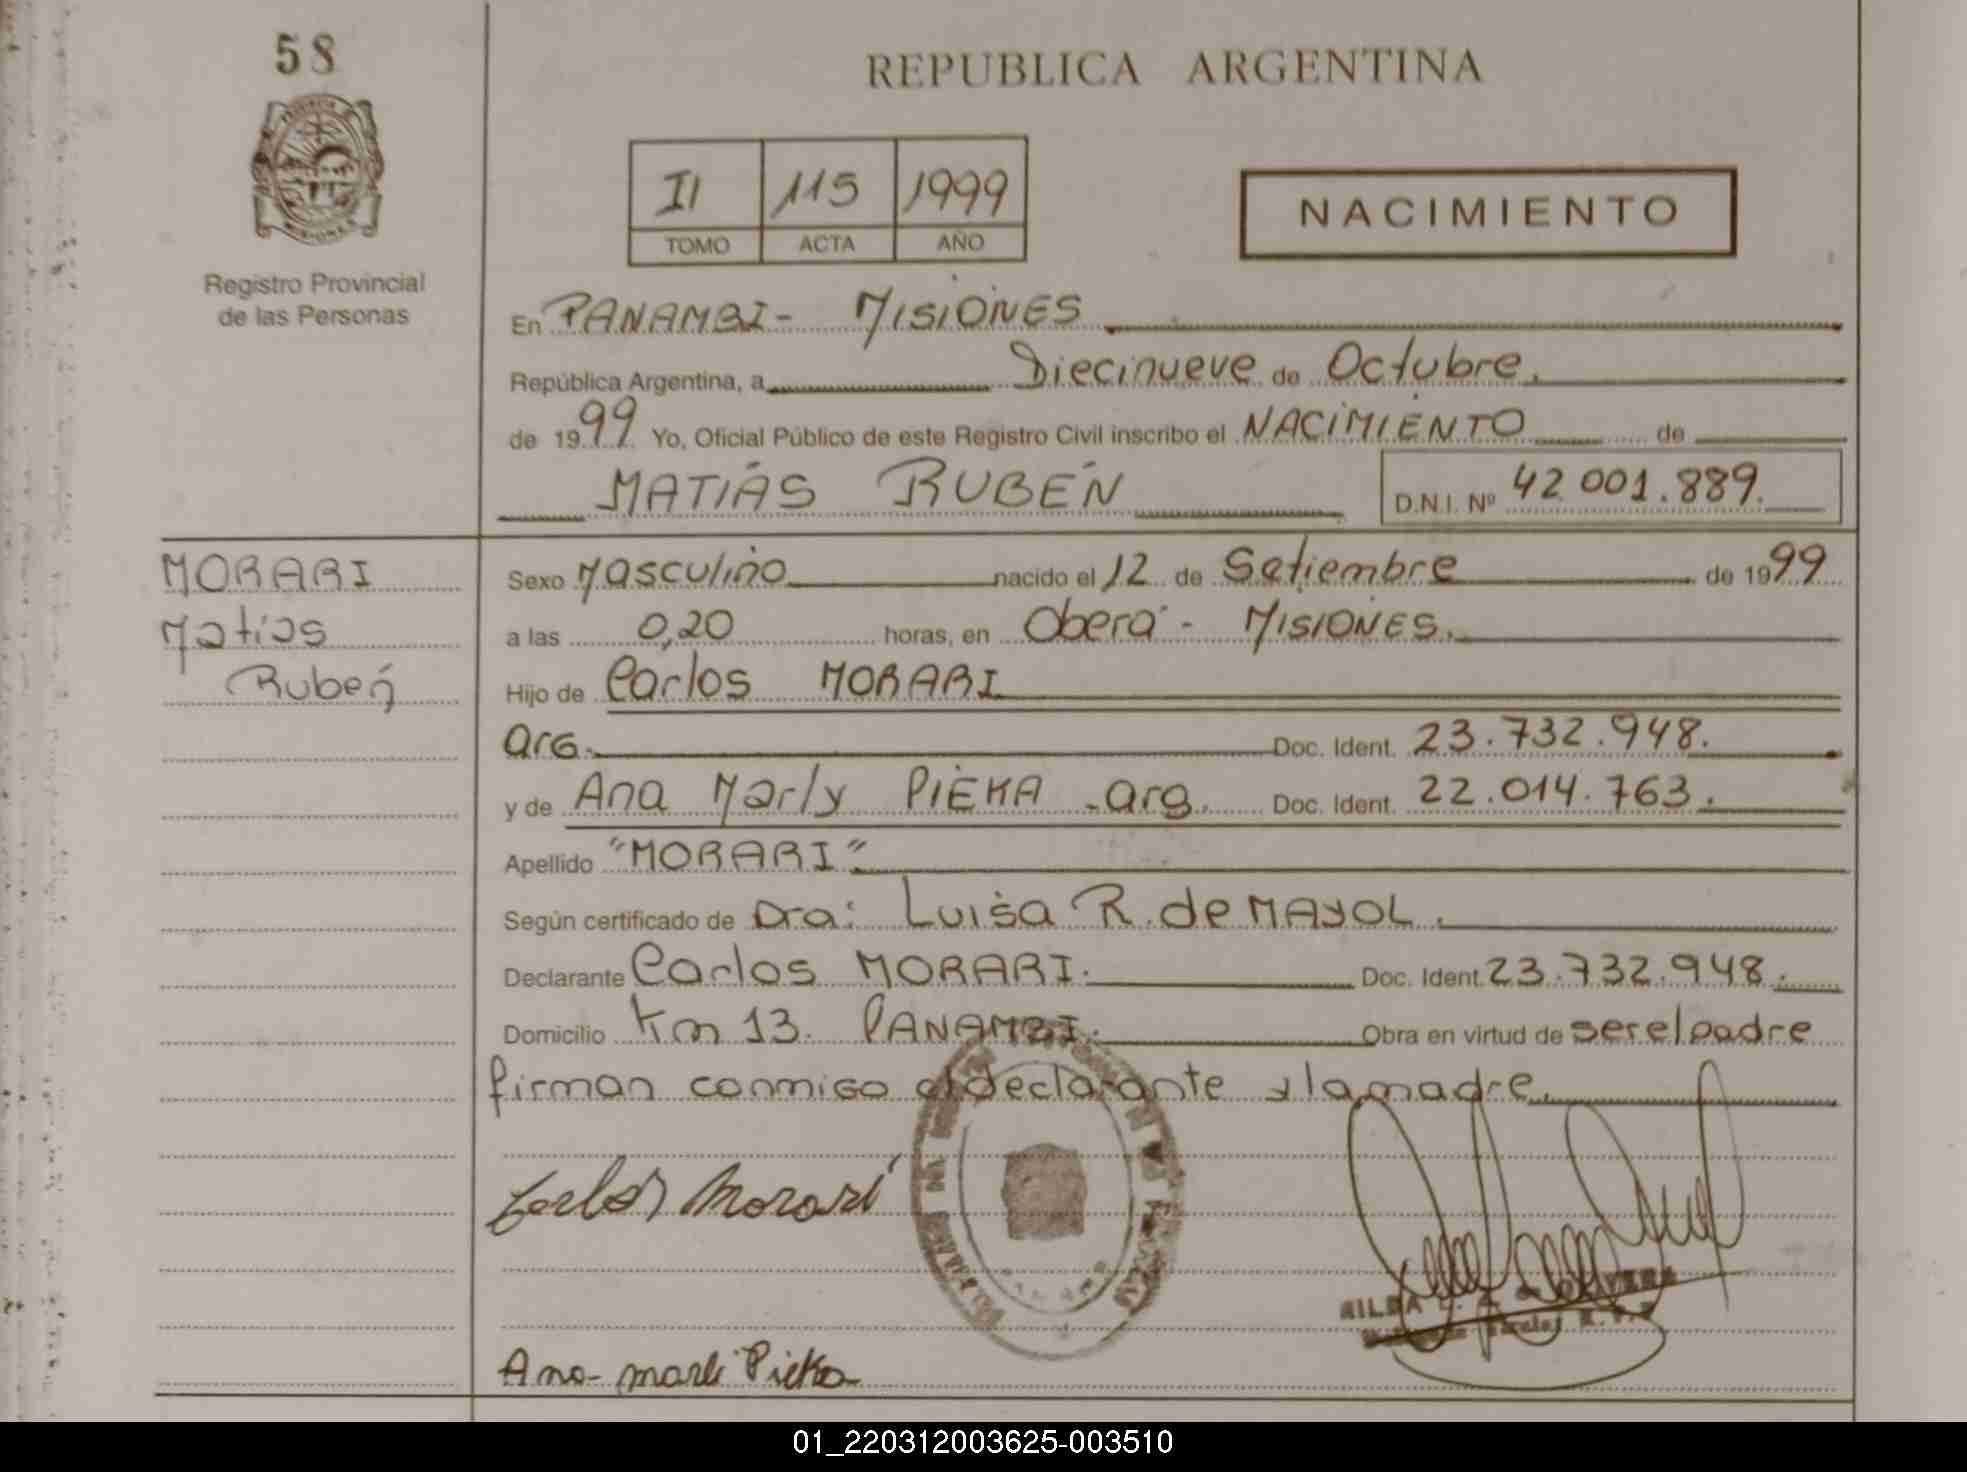 58
REPUBLICA ARGENTINA
II 115 1999
TOMO ACTA AÑO
NACIMIENTO
Registro Provincial
de las Personas
En PANAMBI - MISIONES
República Argentina, a Diecinueve de Octubre.
de 1999 Yo, Oficial Público de este Registro Civil inscribo el NACIMIENTO de
MATIÁS RUBÉN D.N.I. Nº 42.001.889.
MORARI
Matías
Rubén
Sexo Masculino nacido el 12 de Setiembre de 1999
a las 0,20 horas, en Oberá - MISIONES.
Hijo de Carlos MORARI
arg. Doc. Ident. 23.732.948.
y de Ana Marly PIEKA - arg. Doc. Ident. 22.014.763.
Apellido "MORARI"
Según certificado de Dra: Luisa R. de MAYOL.
Declarante Carlos MORARI. Doc. Ident. 23.732.948.
Domicilio Km 13. PANAMBI. Obra en virtud de ser el padre
firman conmigo el declarante y la madre.
Carlos Morari
Ana Marli Pieka
01_220312003625-003510